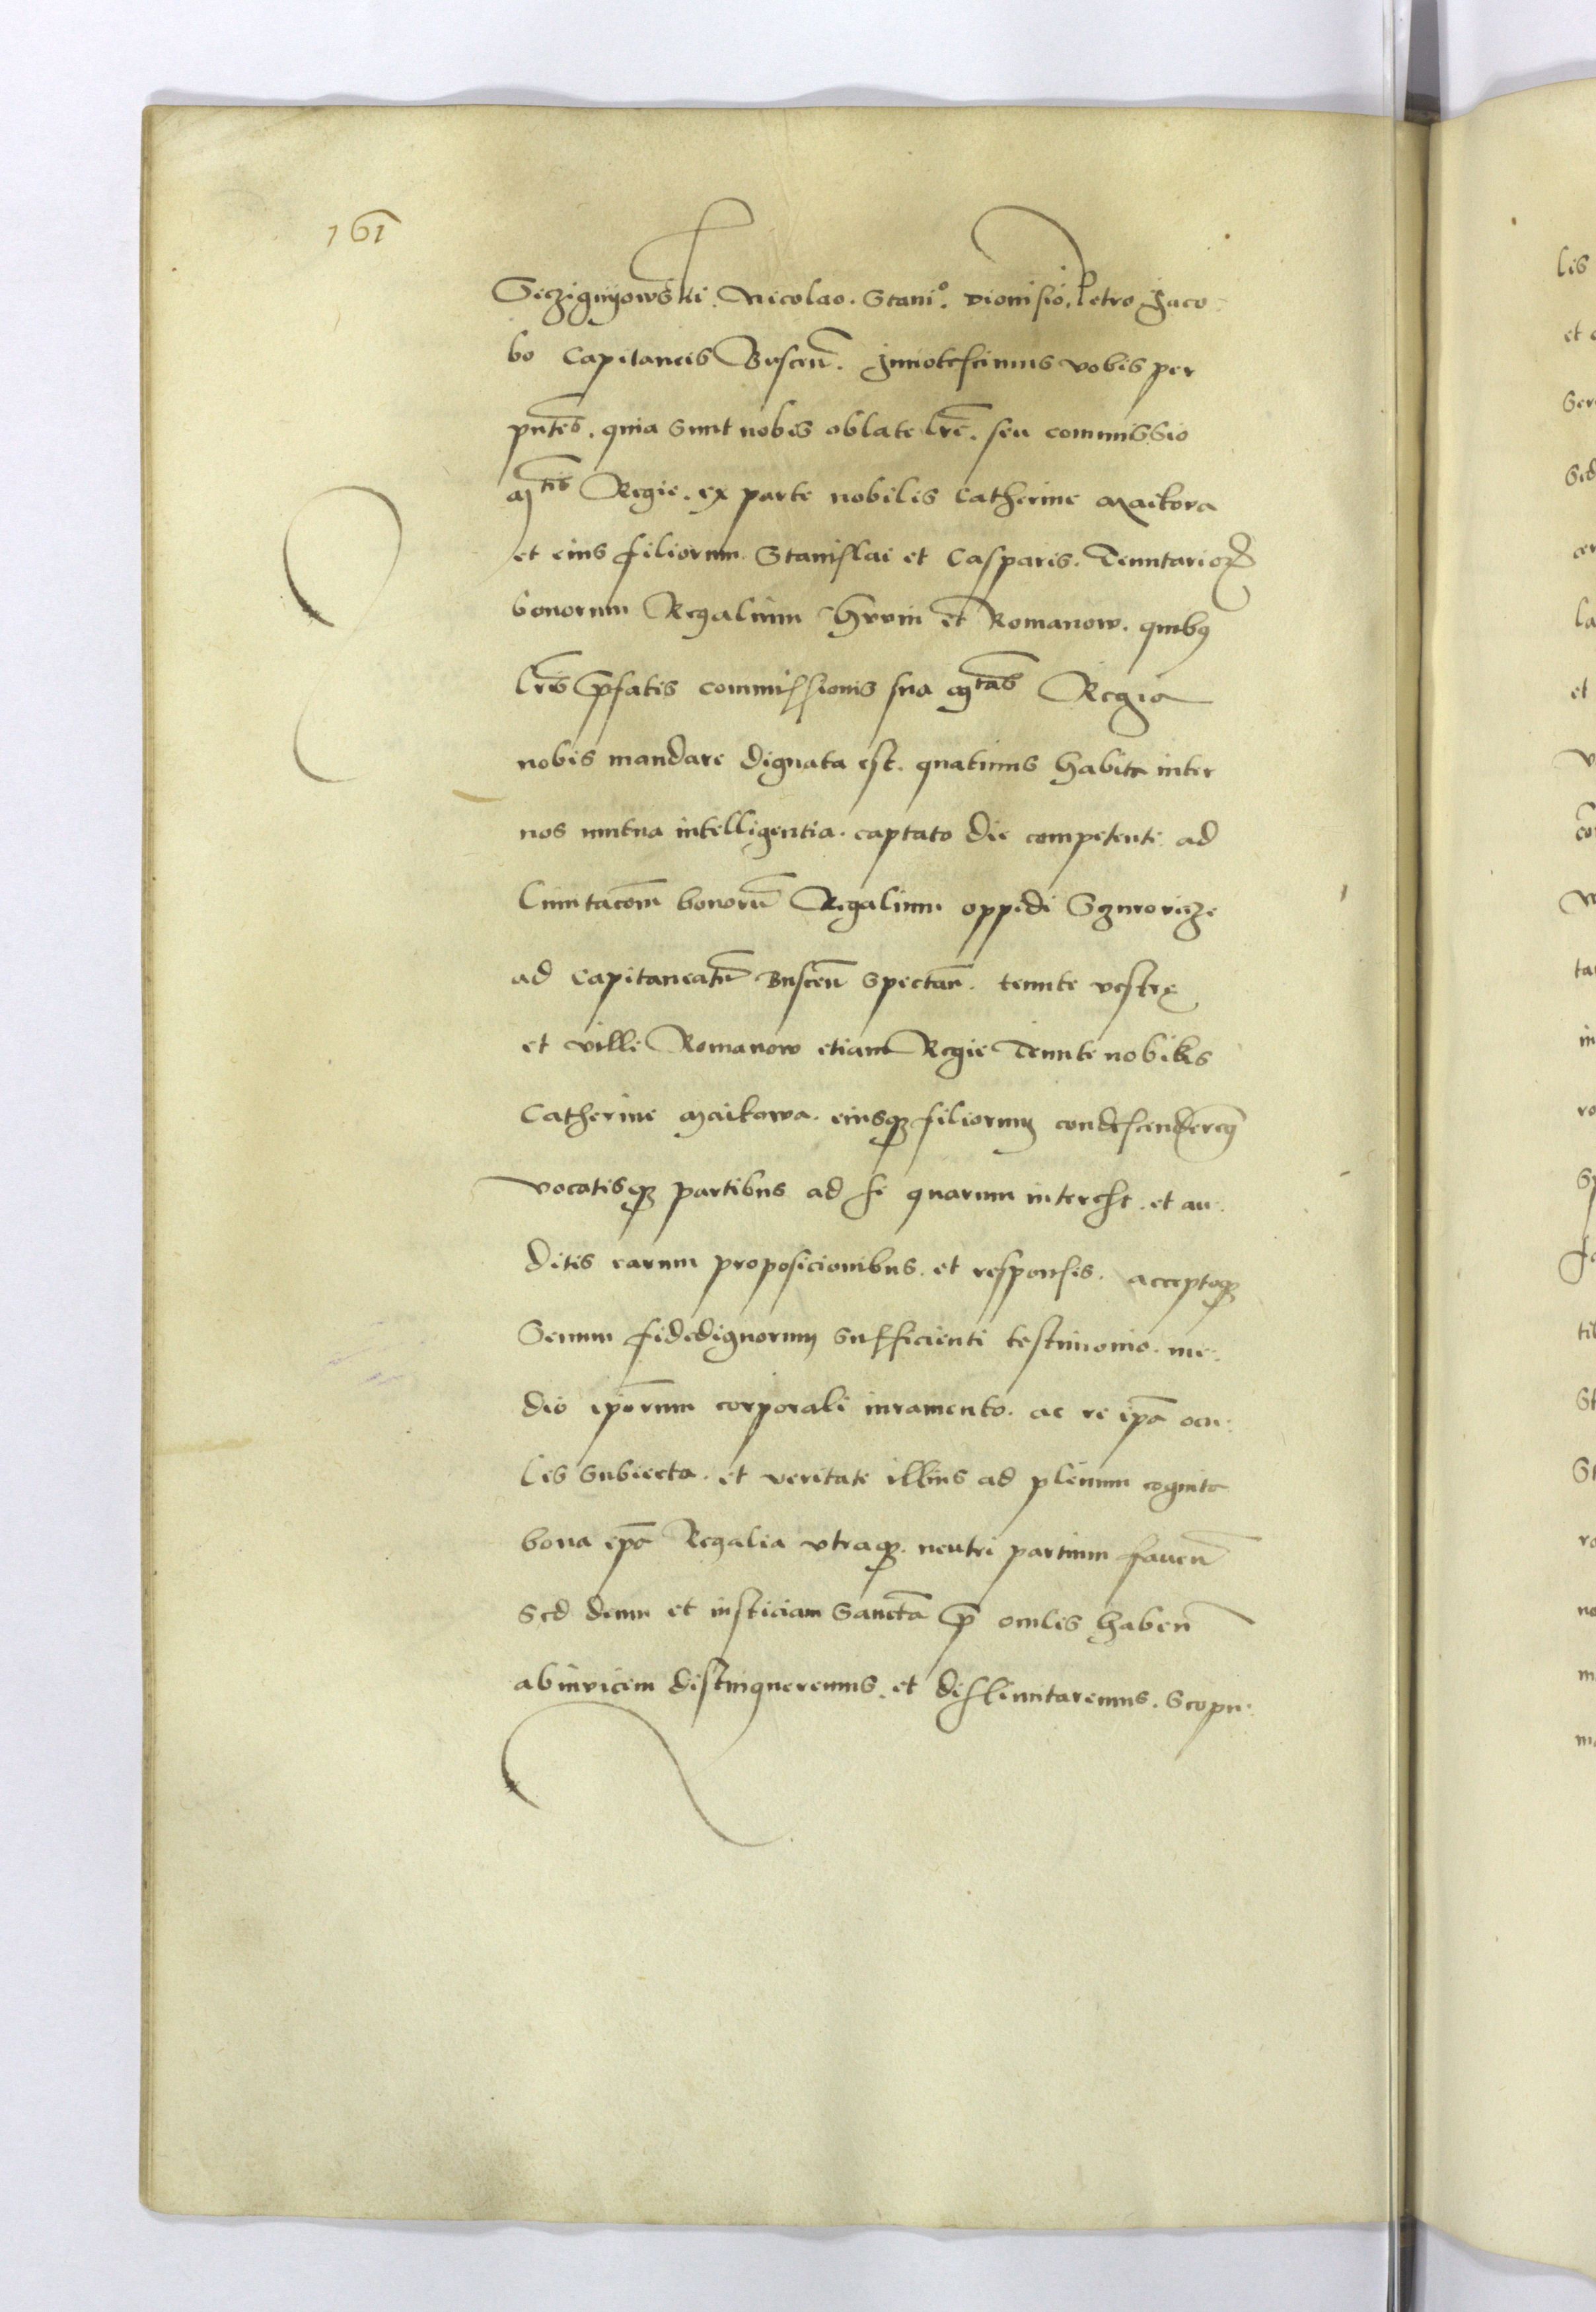 161
Sczignyowski. Nicolao. Stani°. Dionisio. Petro Jaco-
bo Capitaneis Buscen̄. Innotescimus vobis per
pn̄tes. quia sunt nobis oblate lr̄e. seu commissio
Mtis Regie. ex parte nobilis Catherine Maikova
et eius filiorum Stanislai et Casparis. Tenutarioꝝ
bonorum Regalium et Romanow. quibꝰ
lr̄is p̄fatis commissionis sua Mtas Regia
nobis mandare dignata est. quatinus habita inter
nos mutua intelligentia. captato die competenti ad
limitacōm bonorū Regalium oppidi
ad Capitaneatū Buscen̄ spectan̄. tenute vestrę
et ville Romanow etiam Regie Tenute nobilis
Catherine Maikowa. eiusqꝫ filiorum condescenderemꝰ
vocatisqꝫ partibus ad se quarum interest. et au-
ditis earum proposicionibus. et responsis. acceptoqꝫ
Senum fidedignorum sufficienti testimonio. me-
dio ip̄orum corporali iuramento. ac re ip̄a ocu-
lis subiecta. et veritate illius ad plenum cognita
bona ip̄a Regalia vtraqꝫ. neutri partium fauen̄
sed deum et iusticiam sanctā p̄ oculis haben̄
abinvicem distingueremus. et dislimitaremus. Scopu-
lis
et
la
et
in
ro